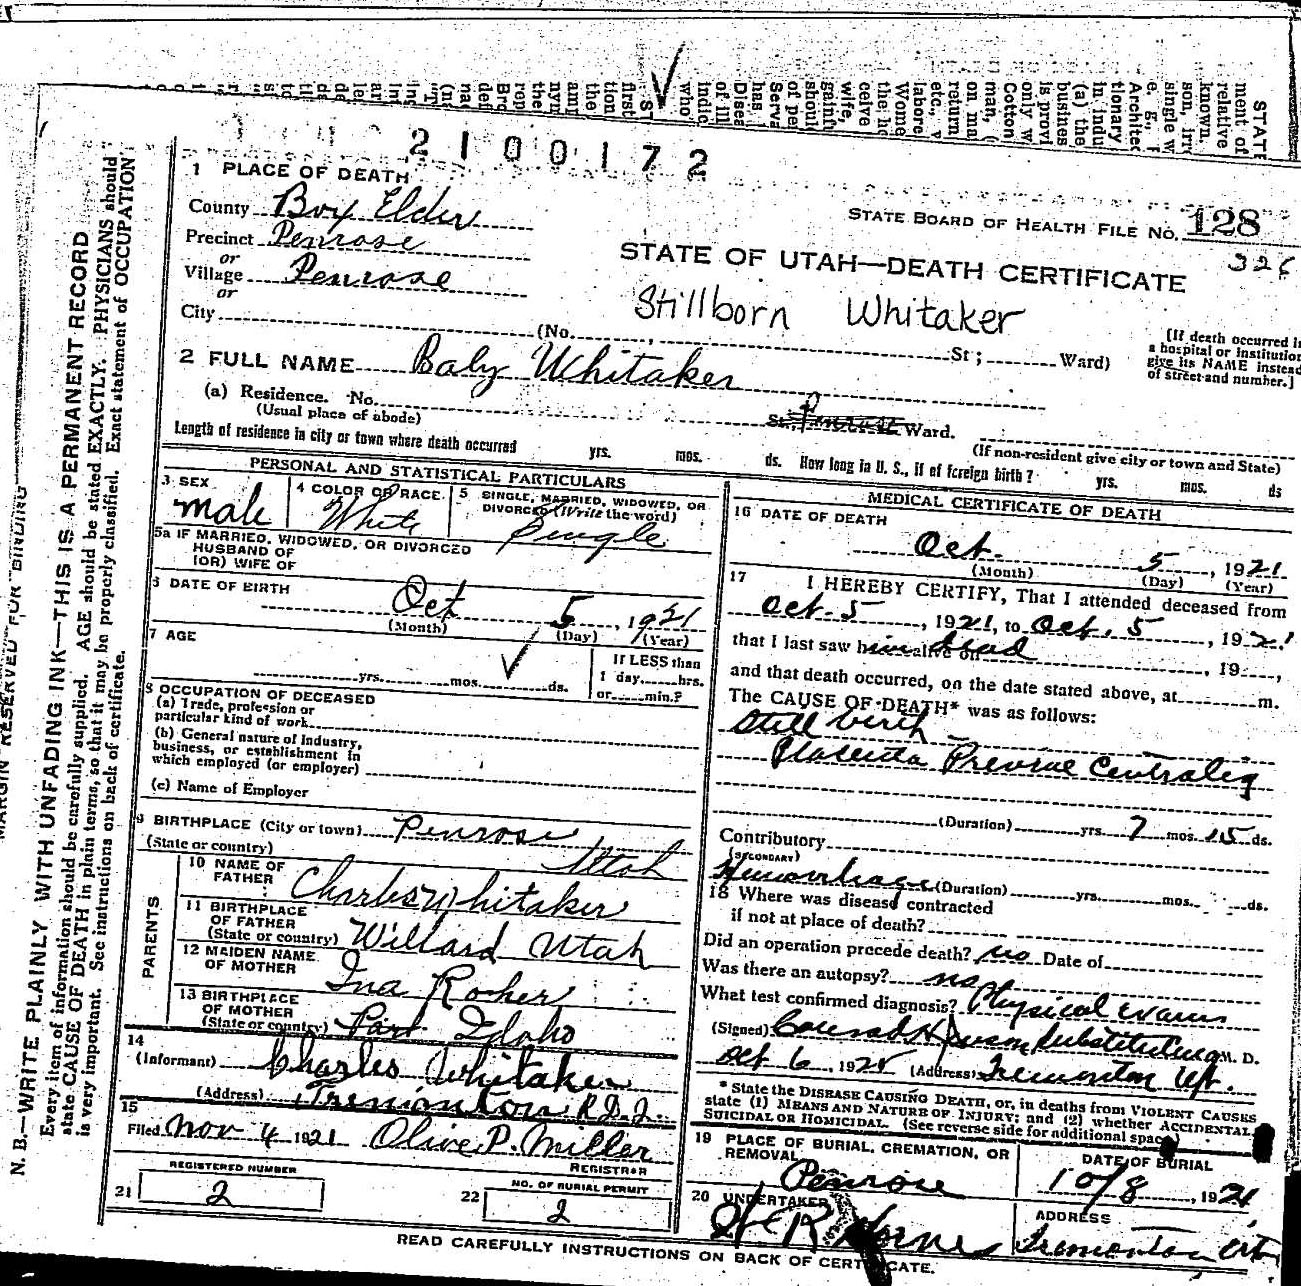 2100172
1 PLACE OF DEATH
County Box Elder
STATE BOARD OF HEALTH FILE NO. 128
326
Precinct Penrose
or
Village Penrose
or
City
STATE OF UTAH—DEATH CERTIFICATE
Stillborn Whitaker
(No. St; Ward)
[If death occurred in
a hospital or institution
give its NAME instead
of street and number.]
2 FULL NAME Baby Whitaker
(a) Residence. No. St. Penrose Ward.
(Usual place of abode)
(If non-resident give city or town and State)
Length of residence in city or town where death occurred yrs. mos. ds. How long in U. S., if of foreign birth? yrs. mos. ds
PERSONAL AND STATISTICAL PARTICULARS
3 SEX
male
4 COLOR OR RACE.
White
5 SINGLE, MARRIED, WIDOWED, OR
DIVORCED (Write the word)
Single
5a IF MARRIED, WIDOWED, OR DIVORCED
HUSBAND OF
(OR) WIFE OF
6 DATE OF BIRTH
Oct 5, 1921
(Month) (Day) (Year)
7 AGE
yrs. mos. ds.
If LESS than
1 day hrs.
or min.?
8 OCCUPATION OF DECEASED
(a) Trade, profession or
particular kind of work
(b) General nature of industry,
business, or establishment in
which employed (or employer)
(c) Name of Employer
9 BIRTHPLACE (City or town) Penrose
(State or country) Utah
PARENTS
10 NAME OF
FATHER Charles Whitaker
11 BIRTHPLACE
OF FATHER
(State or country) Willard Utah
12 MAIDEN NAME
OF MOTHER Ina Roher
13 BIRTHPLACE
OF MOTHER
(State or country) Park Idaho
14
(Informant) Charles Whitaker
(Address) Tremonton R.D.1.
15
Filed Nov 4 1921 Olive P. Miller
REGISTRAR
21 REGISTERED NUMBER
2
22 NO. OF BURIAL PERMIT
2
MEDICAL CERTIFICATE OF DEATH
16 DATE OF DEATH
Oct. 5, 1921
(Month) (Day) (Year)
17 I HEREBY CERTIFY, That I attended deceased from
Oct. 5, 1921, to Oct. 5, 1921
that I last saw him alive on dead, 19
and that death occurred, on the date stated above, at m.
The CAUSE OF DEATH* was as follows:
Still birth
Placenta Previae Centralis
(Duration) yrs. 7 mos. 15 ds.
Contributory
(SECONDARY)
Hemorrhage (Duration) yrs. mos. ds.
18 Where was disease contracted
if not at place of death?
Did an operation precede death? no Date of
Was there an autopsy? no
What test confirmed diagnosis? Physical exam
(Signed) Conrad H Jenson M. D.
Oct 6, 192 (Address) Tremonton Ut.
* State the DISEASE CAUSING DEATH, or, in deaths from VIOLENT CAUSES
state (1) MEANS AND NATURE OF INJURY; and (2) whether ACCIDENTAL,
SUICIDAL OR HOMICIDAL. (See reverse side for additional space)
19 PLACE OF BURIAL, CREMATION, OR
REMOVAL
Penrose
DATE OF BURIAL
10/8, 1921
20 UNDERTAKER
ADDRESS
Tremonton Ut
READ CAREFULLY INSTRUCTIONS ON BACK OF CERTIFICATE.
MARGIN RESERVED FOR BINDING
N. B.—WRITE PLAINLY WITH UNFADING INK—THIS IS A PERMANENT RECORD
Every item of information should be carefully supplied. AGE should be stated EXACTLY. PHYSICIANS should
state CAUSE OF DEATH in plain terms, so that it may be properly classified. Exact statement of OCCUPATION
is very important. See instructions on back of certificate.